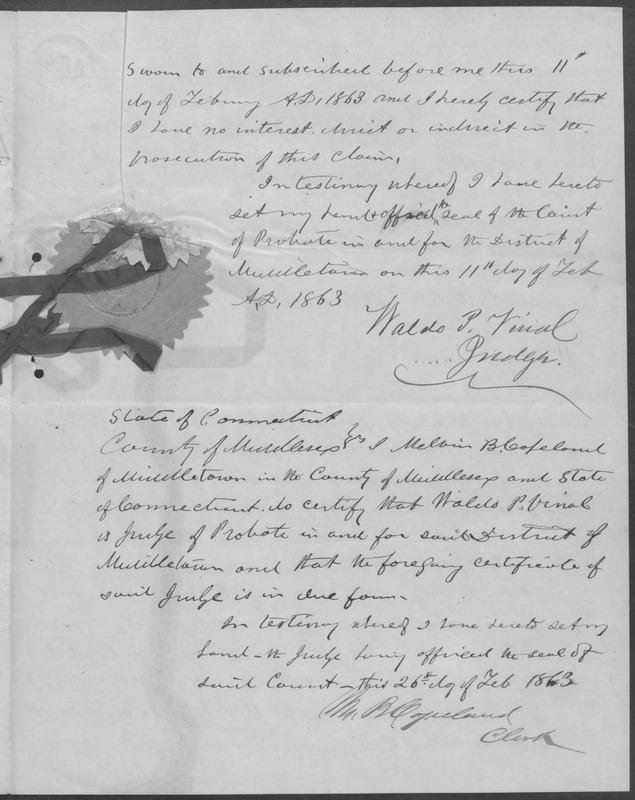 Sworn to and subscribed before me this 11th
day of February A.D. 1863 and I hereby certify that
I have no interest, direct or indirect in the
prosecution of this claim.
In testimony whereof I have hereto
set my hand & official the seal of the Court
of Probate in and for the District of
Middletown on this 11th day of Feb
A.D. 1863
Waldo P. Vinal
Judge.
State of Connecticut
County of Middlesex ss I Melvin B. Copeland
of Middletown in the County of Middlesex and State
of Connecticut, do certify that Waldo P. Vinal
is Judge of Probate in and for said District of
Middletown and that the foregoing certificate of
said Judge is in due form.
In testimony whereof I have hereto set my
hand - the Judge having affixed the seal of
said Court - this 26th day of Feb 1863
M. B. Copeland
Clerk